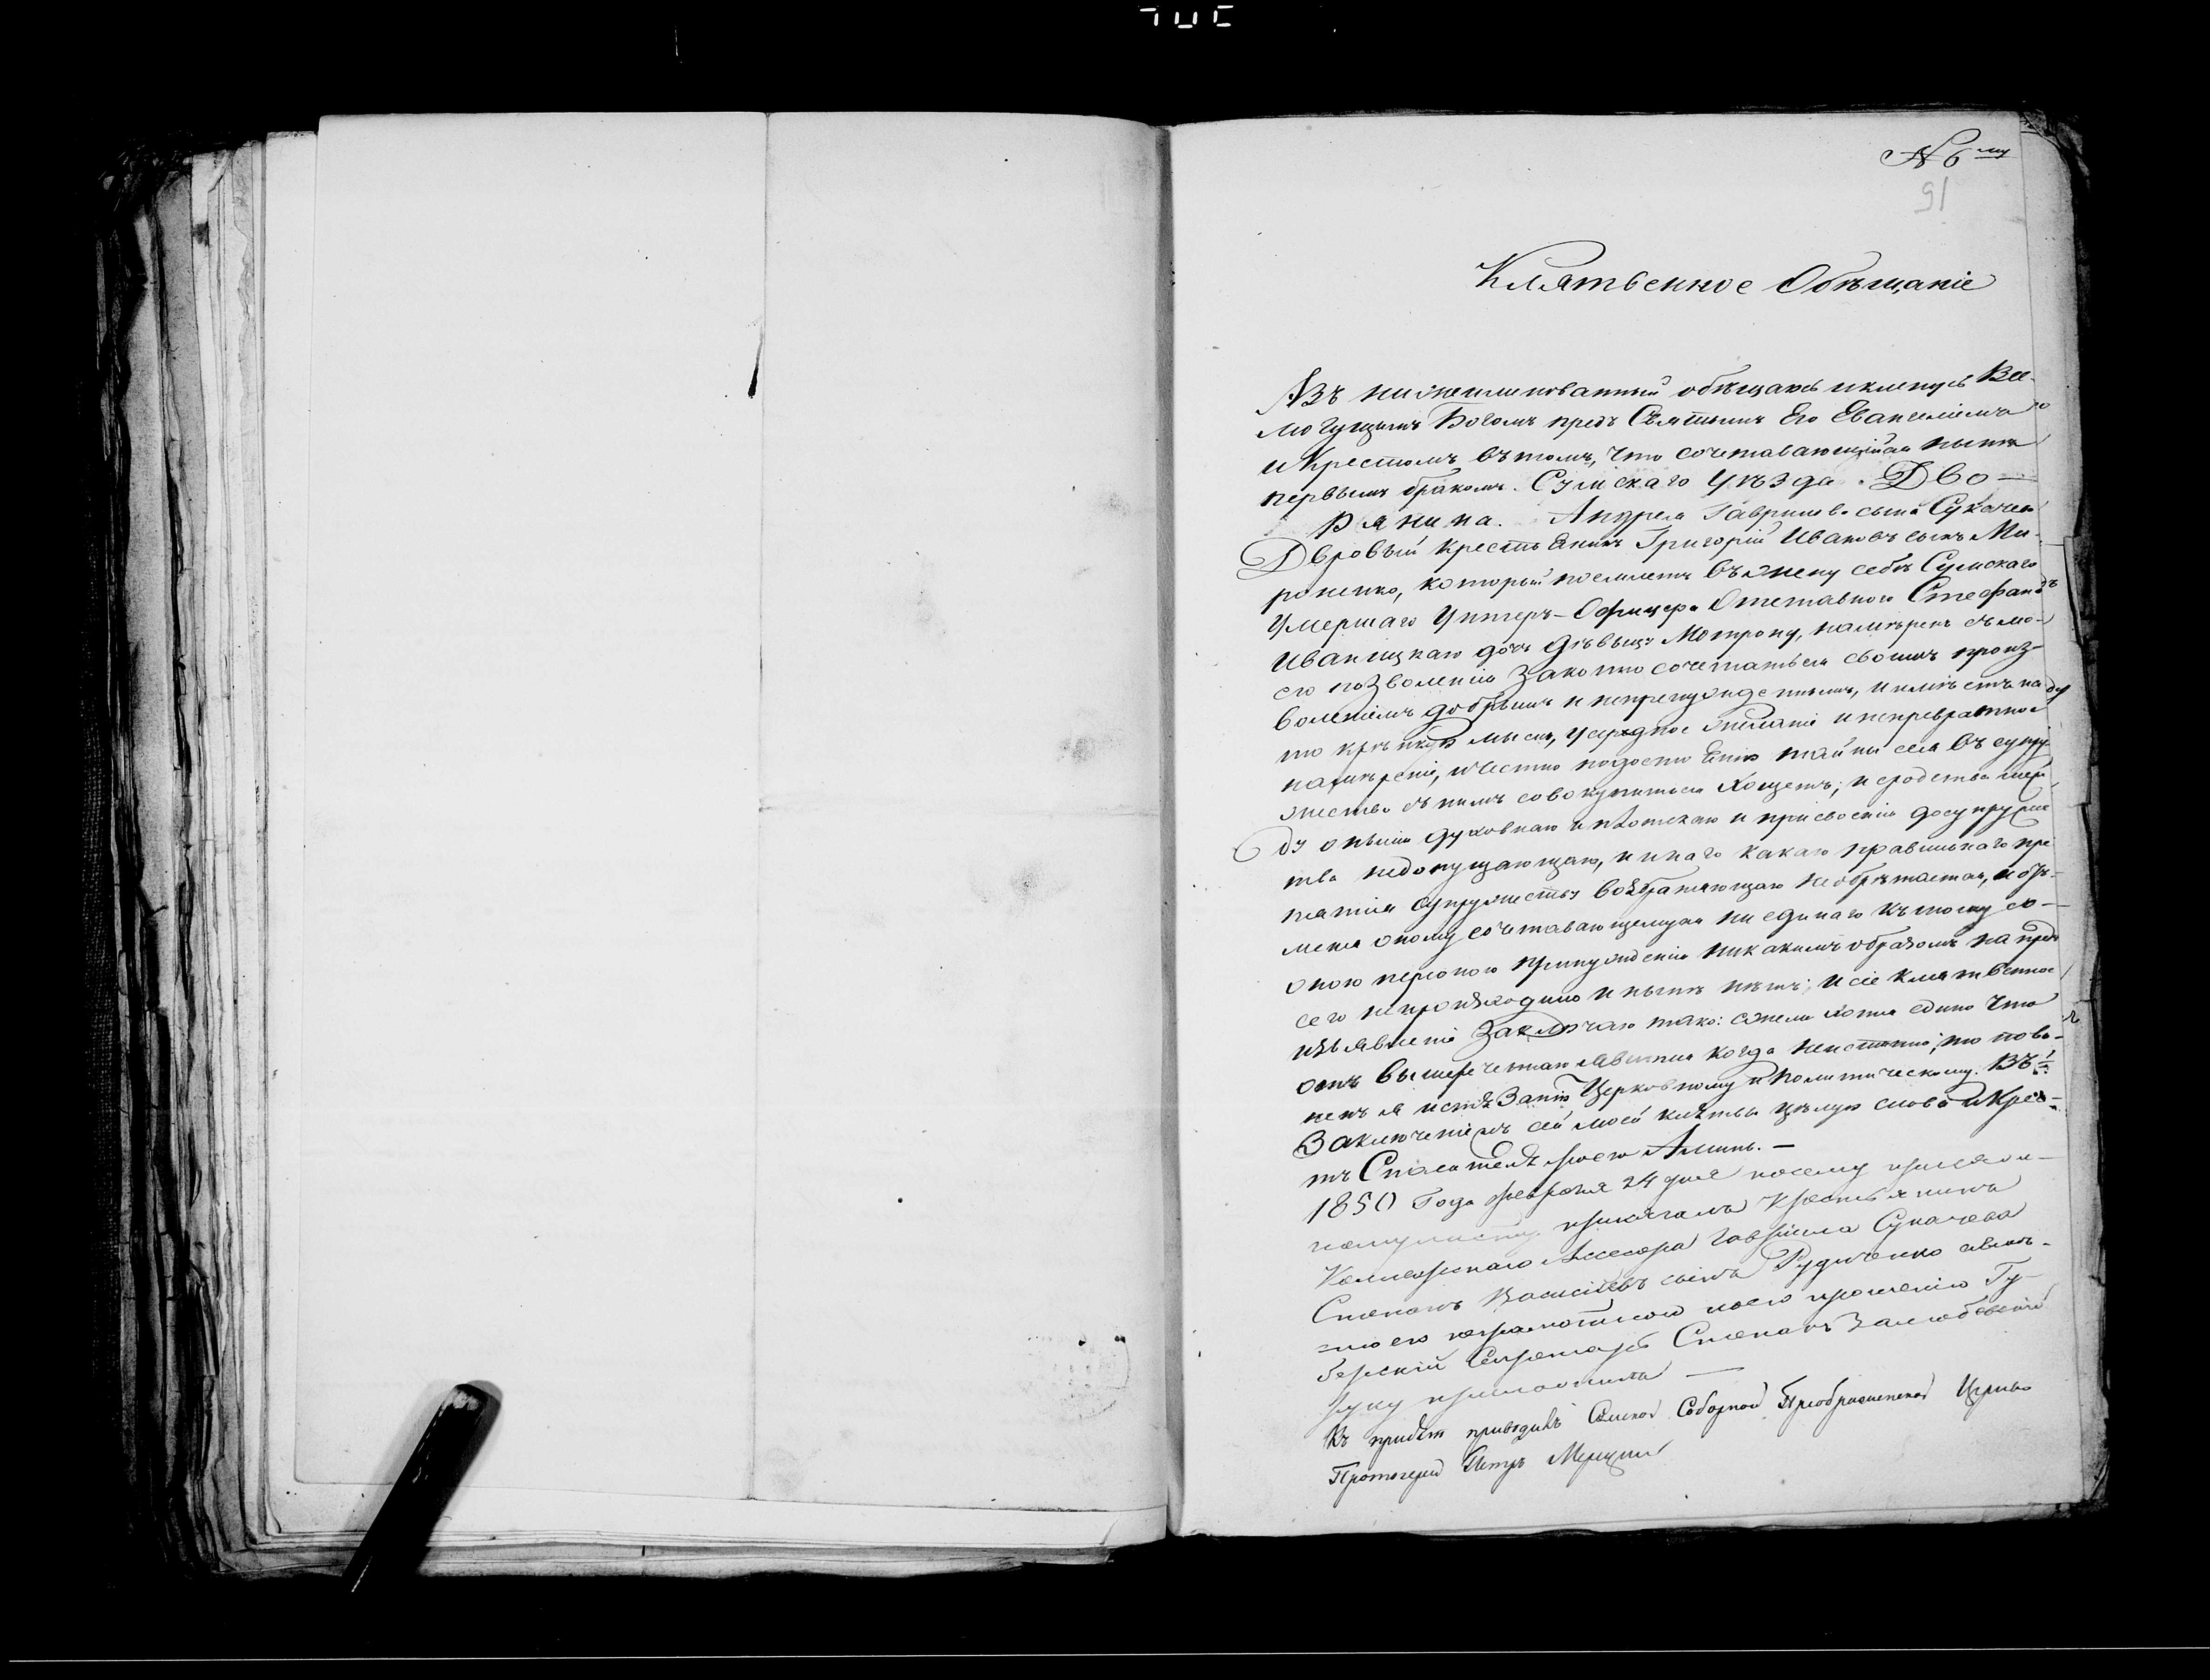 № 6му
91
Клятвенное Обѣщаніе
Азъ нижеимянованный обѣщаюсь и кленусь Все-
могущимъ Богомъ предъ Святымъ Его Евангеліемъ
и Крестомъ въ томъ, что сочетавающійся нынѣ
первымъ бракомъ Сумскаго Уѣзда. Дво-
рянина. Андрея Гаврилова сына Сукачева
Дворовый крестьенинъ Григорій Ивановъ сынъ Ми-
роненко, который поемлетъ въ жену себѣ Сумскаго
Умершаго Унтеръ-Офицера Отставного Стефана
Иваницкаю дочь дѣвицу Мотрону, намѣренъ съ мо-
его позволенія Законно сочетаться своимъ произ-
воленіемъ добрымъ и непренужденнымъ, и имѣетъ на
то крѣпкую мысль, усердное желаніе и непревратное
намѣреніе, и честно по достоенію тайны сея въ супру-
жество съ нимъ совокупиться хощетъ; и сродства меж
ду оными духовнаю и плотскаю и присвоенія до супруже
тва недопущающаю, и инаго какаю правильнаго пре
пятія супружеству возбраняющаю не обрѣтается, и отъ
меня оному сочетавающемуся ни единаго къ тому со
оною персоною принужденія никакимъ образомъ на предъ
сего не происходило и нынѣ нѣтъ; и сіе клятвенное
изъявленіе Заключаю тако: ежели хотя едино что
отъ вышереченнаю явится когда неистинно, то пови-
ненъ я истязанію Церковному и Политическому. Въ
Заключеніемъ сей моей клятвы цѣлую слова и Крес-
тъ Спасителя моего Аминь. —
1850 Года февраля 24 дня по сему присяж-
ному листу присягалъ Крестьянинъ
Коллежскаго Ассесора Гавріила Сукачева
Степанъ Васильевъ сынъ Рудченко а вмес-
то его неграмотнаго по его прошенію Гу-
бернскій Секретарь Степанъ
руку приложилъ —
Къ присягѣ приводилъ Сумской Соборной Преображенской Церкви
Протоіерей Петръ